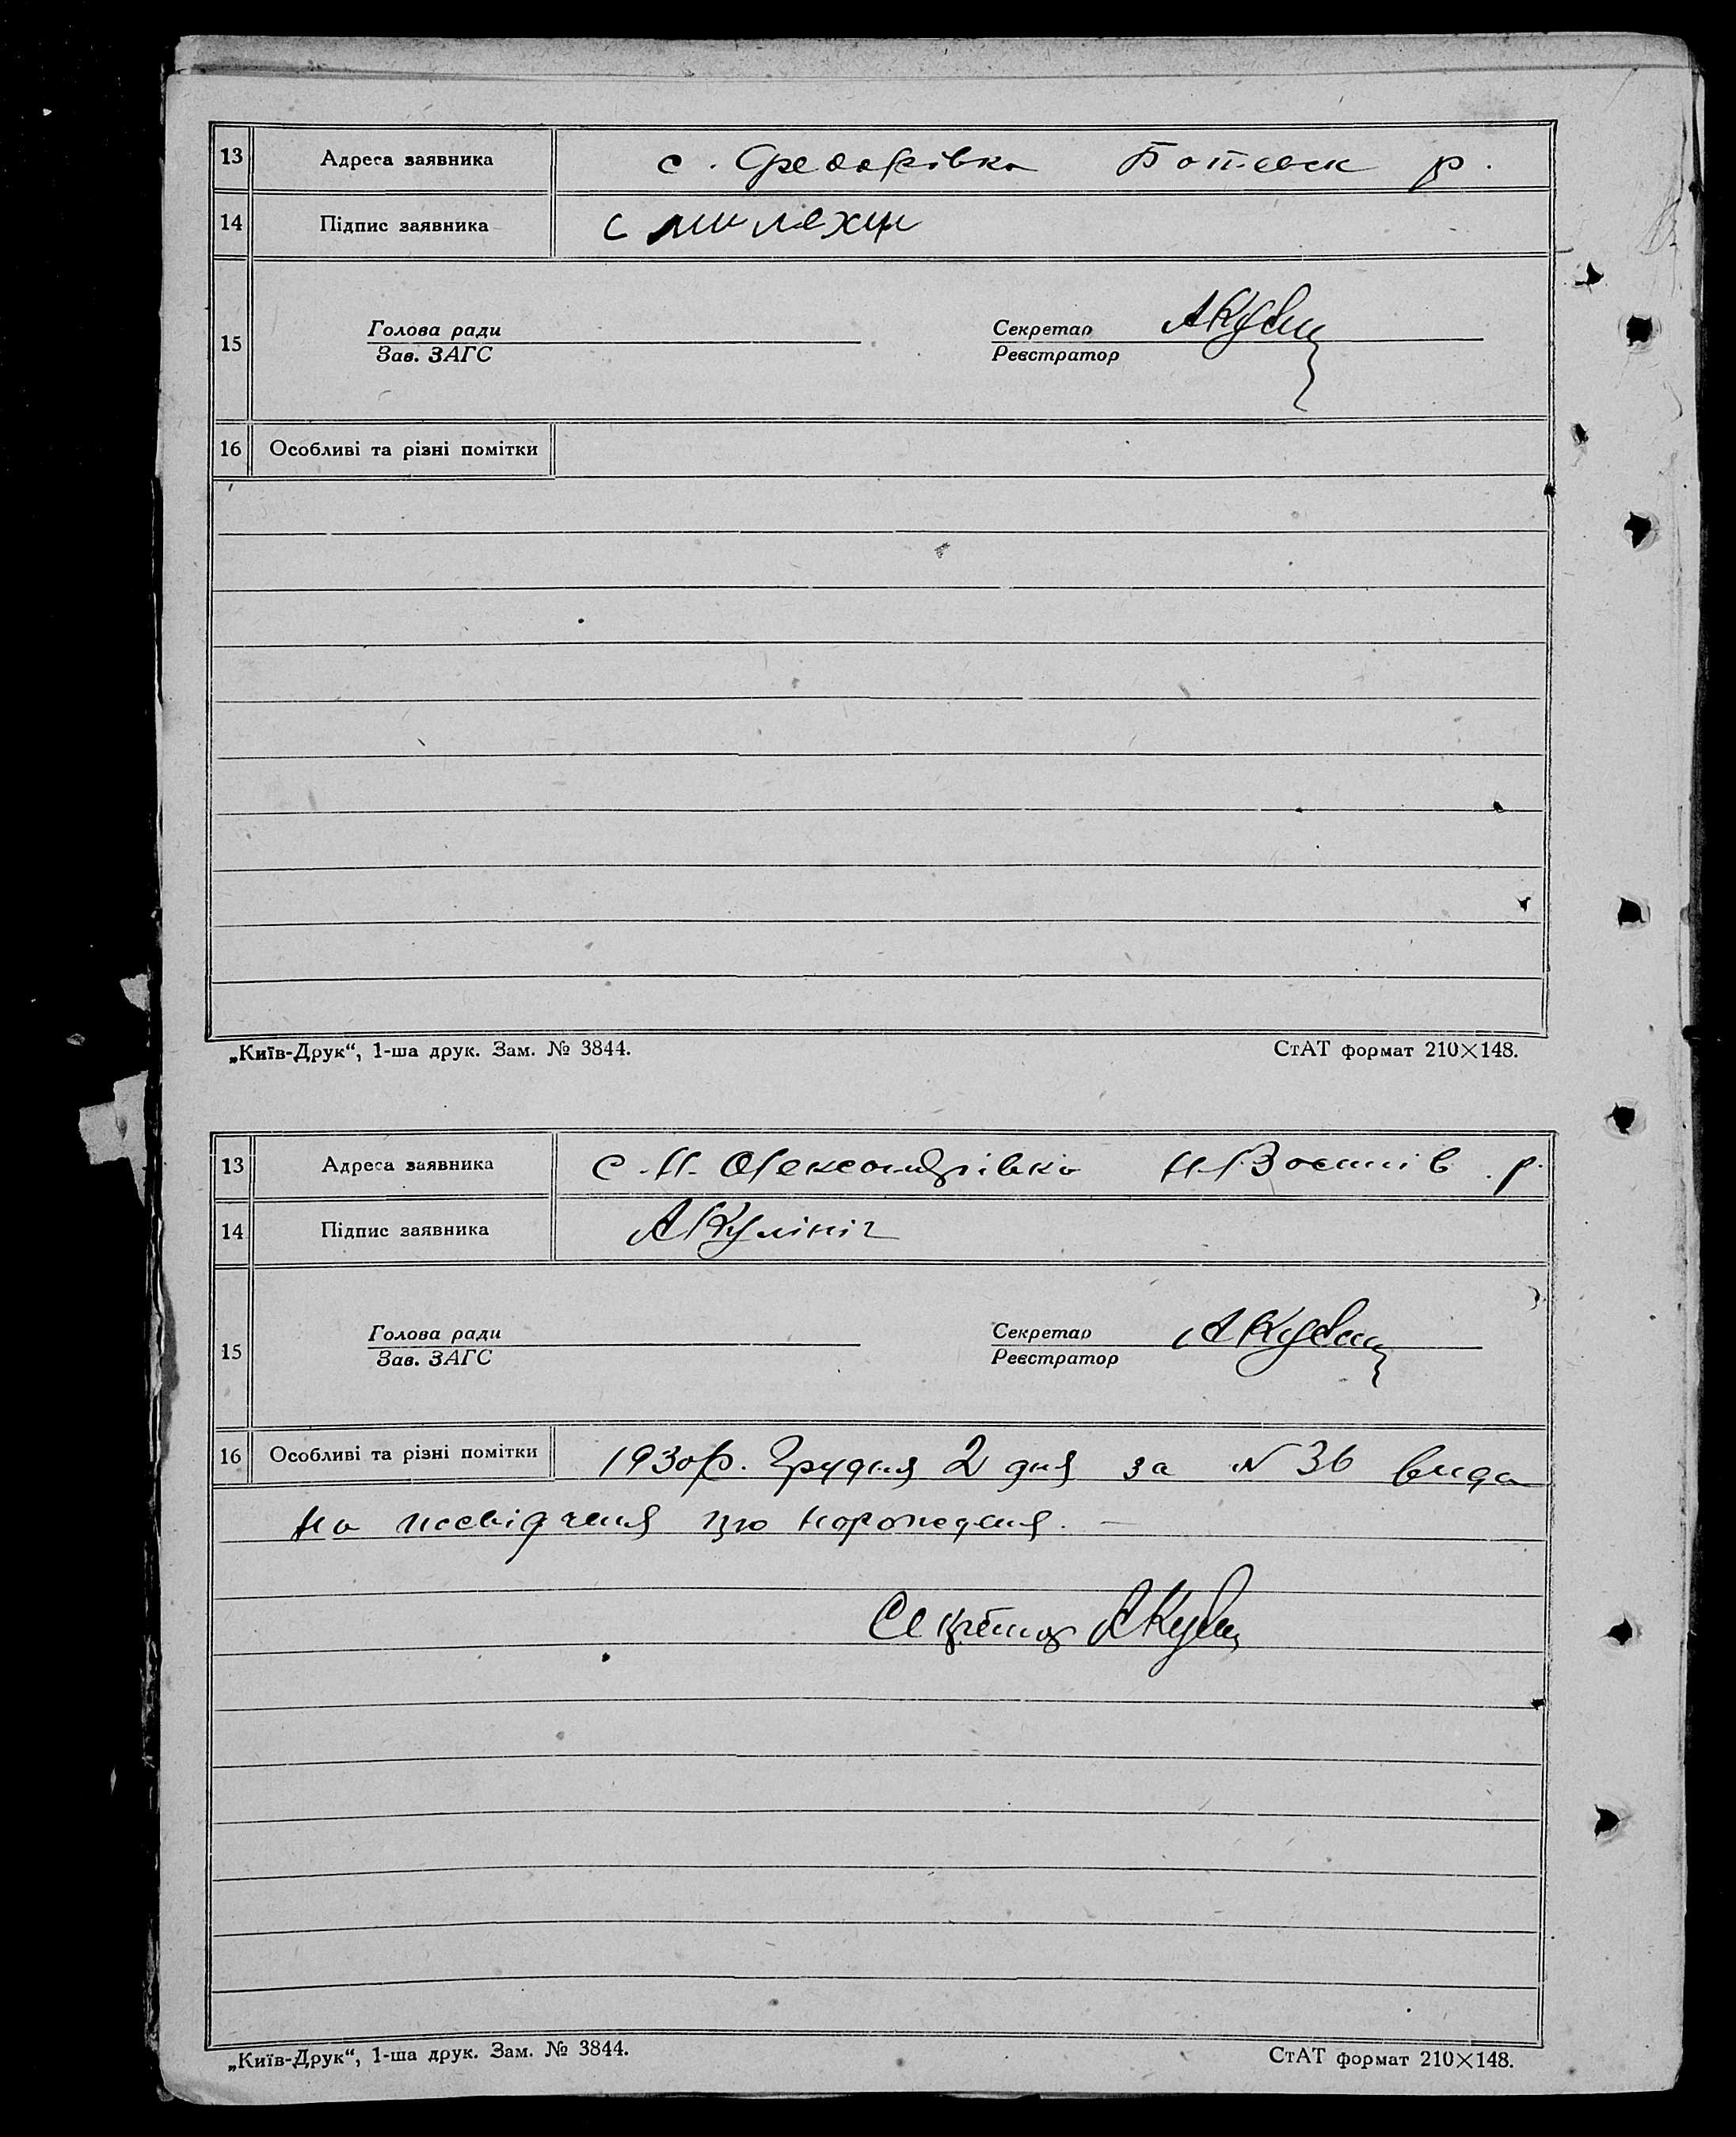 13 Адреса заявника с. Федорівка р.
14 Підпис заявника
Голова ради Секретар
15
Зав. ЗАГС Реєстратор
16 Особливі та різні помітки
„Київ-Друк“, 1-ша друк. Зам. № 3844. СтАТ формат 210×148.
13 Адреса заявника с. Н. Олександрівка р.
14 Підпис заявника А Кулініч
Голова ради Секретар
15
Зав. ЗАГС Реєстратор
16 Особливі та різні помітки 1930 р. Грудня 2 дня за № 36 вида
но посвідчення про народження. —
Секретар
„Київ-Друк“, 1-ша друк. Зам. № 3844. СтАТ формат 210×148.